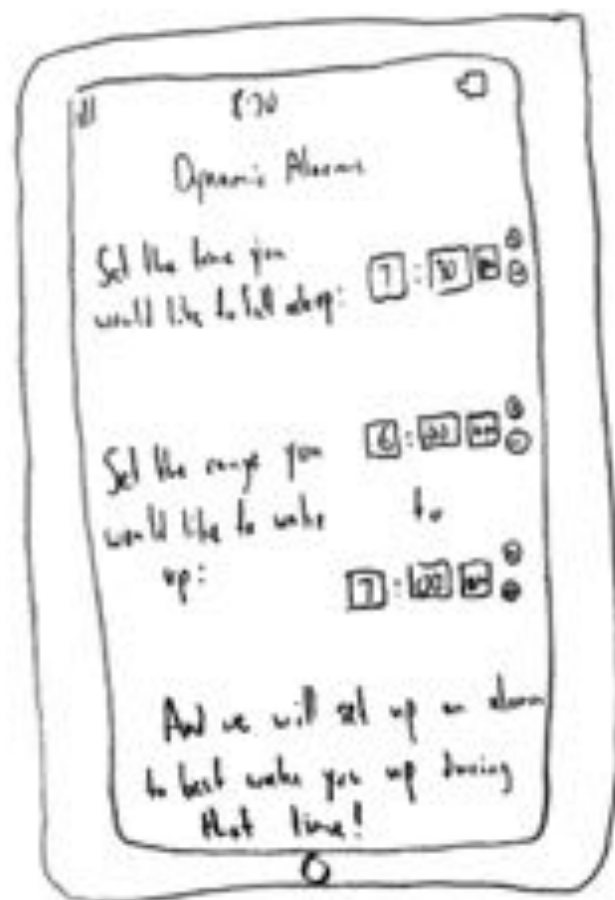 Dynamic Alarms
Set the time you
would like to fall asleep:
7 : 30
Set the range you
would like to wake
up:
6 : 00 am
to
7 : 00 am
And we will set up an alarm
to best wake you up during
that time!